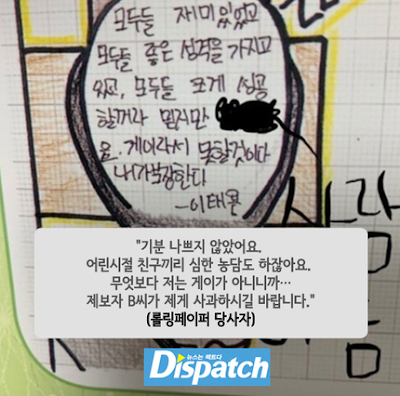 모두들 재미있었고
모두들 좋은 성격을 가지고
있고, 모두들 크게 성공
할꺼라 믿지만
은 게이라서 못할것이다
사람
"기분 나쁘지 않았어요.
어린시절 친구끼리 심한 농담도 하잖아요.
무엇보다 저는 게이가 아니니까…
제보자 B씨가 제게 사과하시길 바랍니다."
(롤링페이퍼 당사자)
뉴스는 팩트다
Dispatch